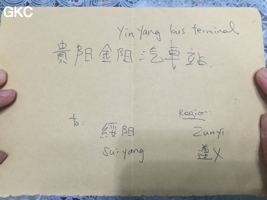 GKC
Yin Yang bus terminal
貴阳金阳汽車站
to:
綏阳
Sui yang
Region:
Zunyi
遵义